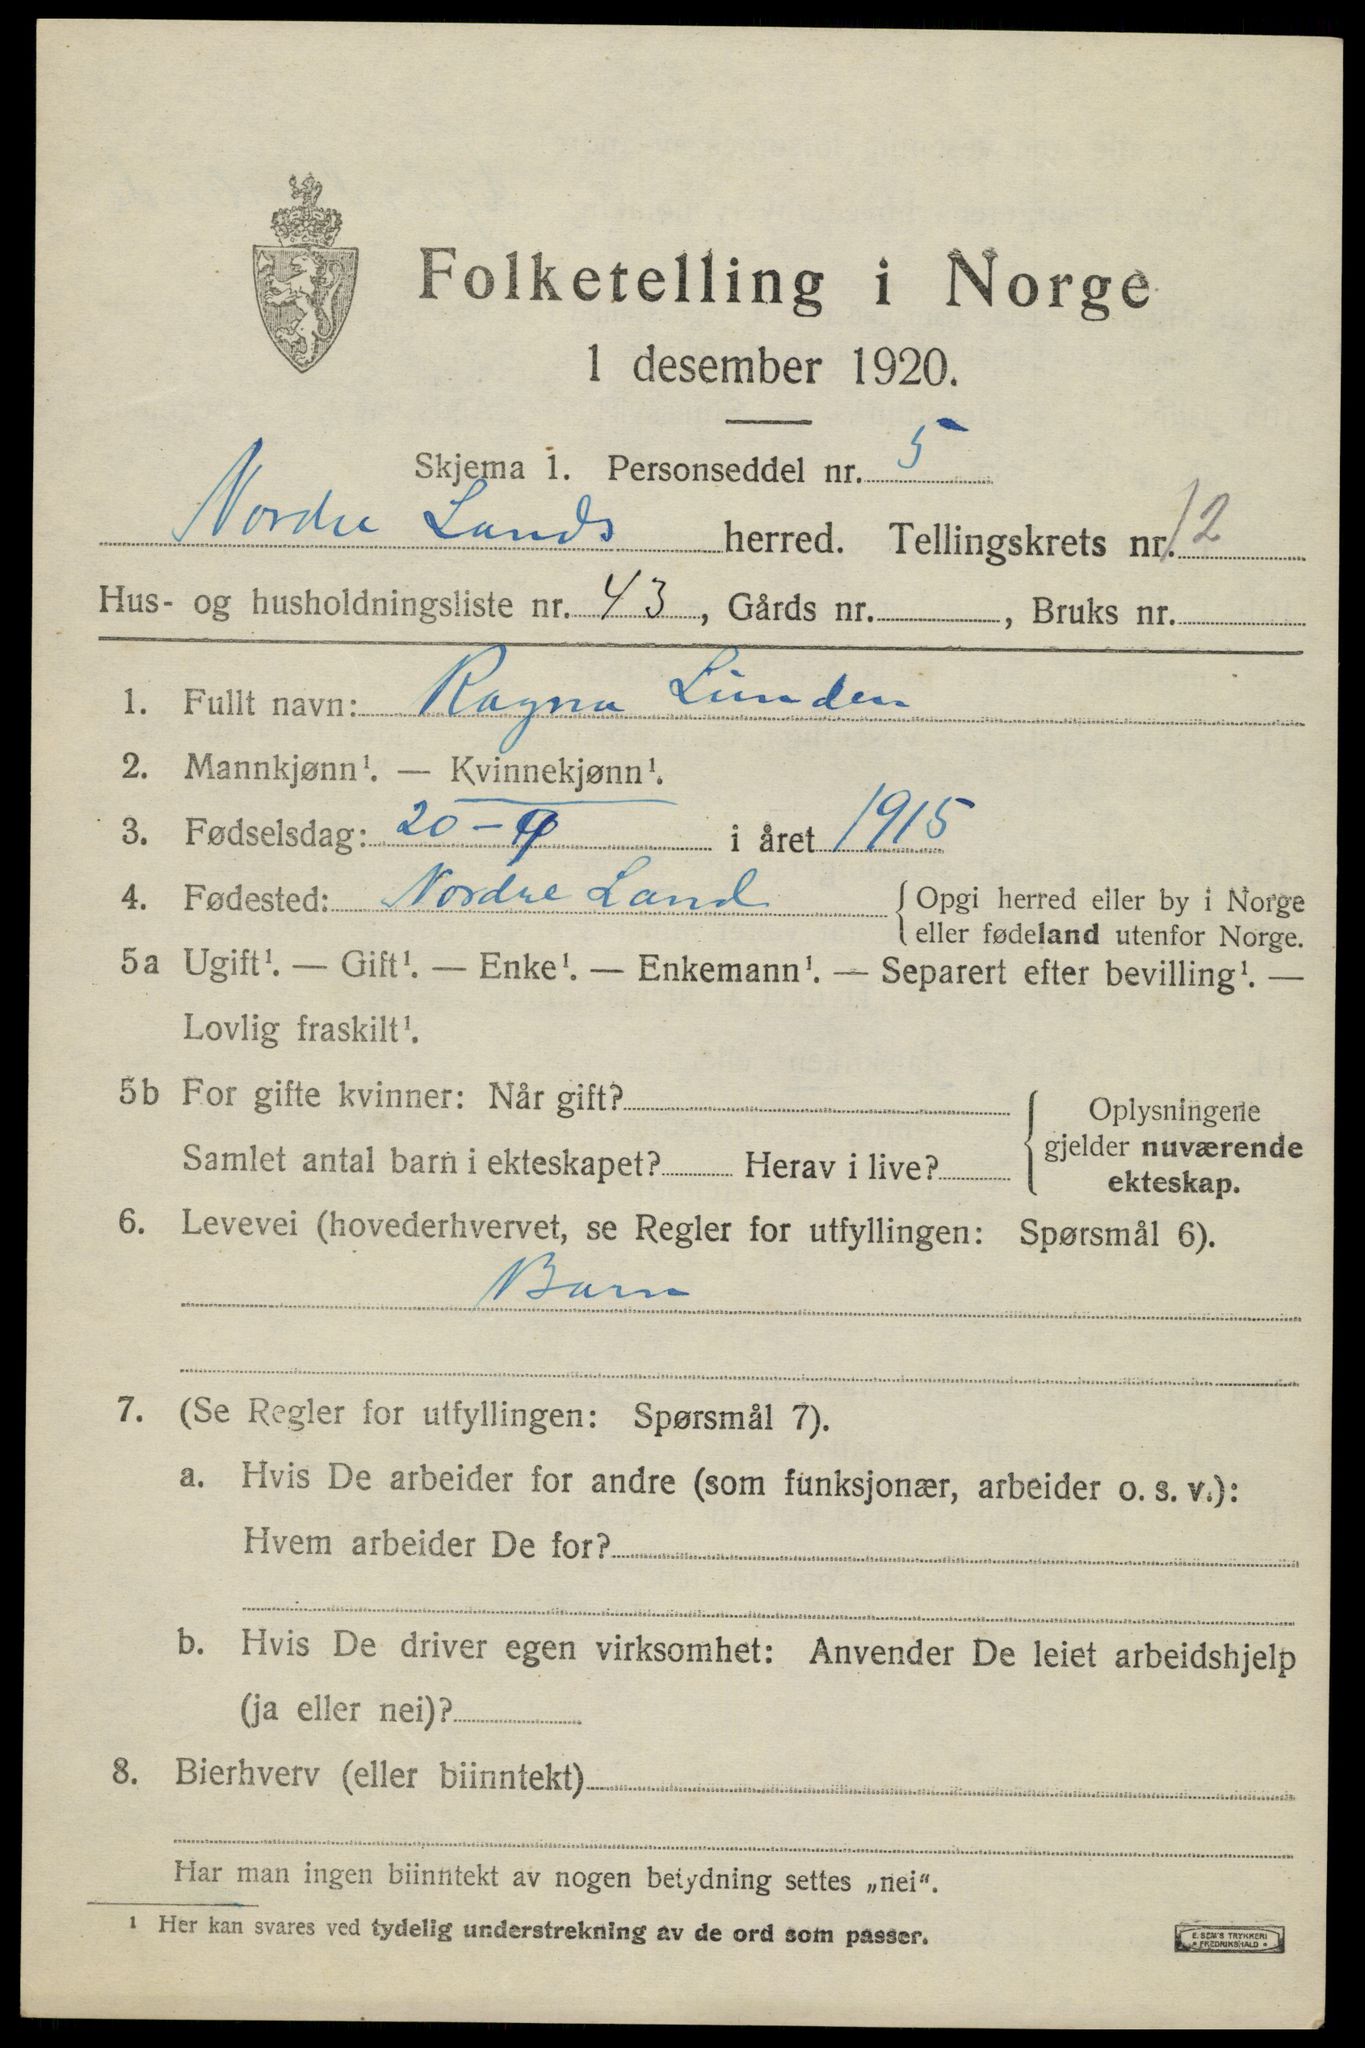 Folketelling i Norge
1 desember 1920.
Skjema 1. Personseddel nr. 5
Nordre Lands herred. Tellingskrets nr. 12
Hus- og husholdningsliste nr. 43, Gårds nr. , Bruks nr.
1. Fullt navn: Ragna Lunden
2. Mannkjønn¹. — Kvinnekjønn¹.
3. Fødselsdag: 20 – i året 1915
4. Fødested: Nordre Land { Opgi herred eller by i Norge
eller fødeland utenfor Norge.
5a Ugift¹. — Gift¹. — Enke¹. — Enkemann¹. — Separert efter bevilling¹. —
Lovlig fraskilt¹.
5b For gifte kvinner: Når gift? { Oplysningene
gjelder nuværende
Samlet antal barn i ekteskapet? Herav i live? ekteskap.
6. Levevei (hovederhvervet, se Regler for utfyllingen: Spørsmål 6).
Barn
7. (Se Regler for utfyllingen: Spørsmål 7).
a. Hvis De arbeider for andre (som funksjonær, arbeider o. s. v.):
Hvem arbeider De for?
b. Hvis De driver egen virksomhet: Anvender De leiet arbeidshjelp
(ja eller nei)?
8. Bierhverv (eller biinntekt)
Har man ingen biinntekt av nogen betydning settes „nei".
¹ Her kan svares ved tydelig understrekning av de ord som passer.
E. SEM'S TRYKKERI
FREDRIKSHALD